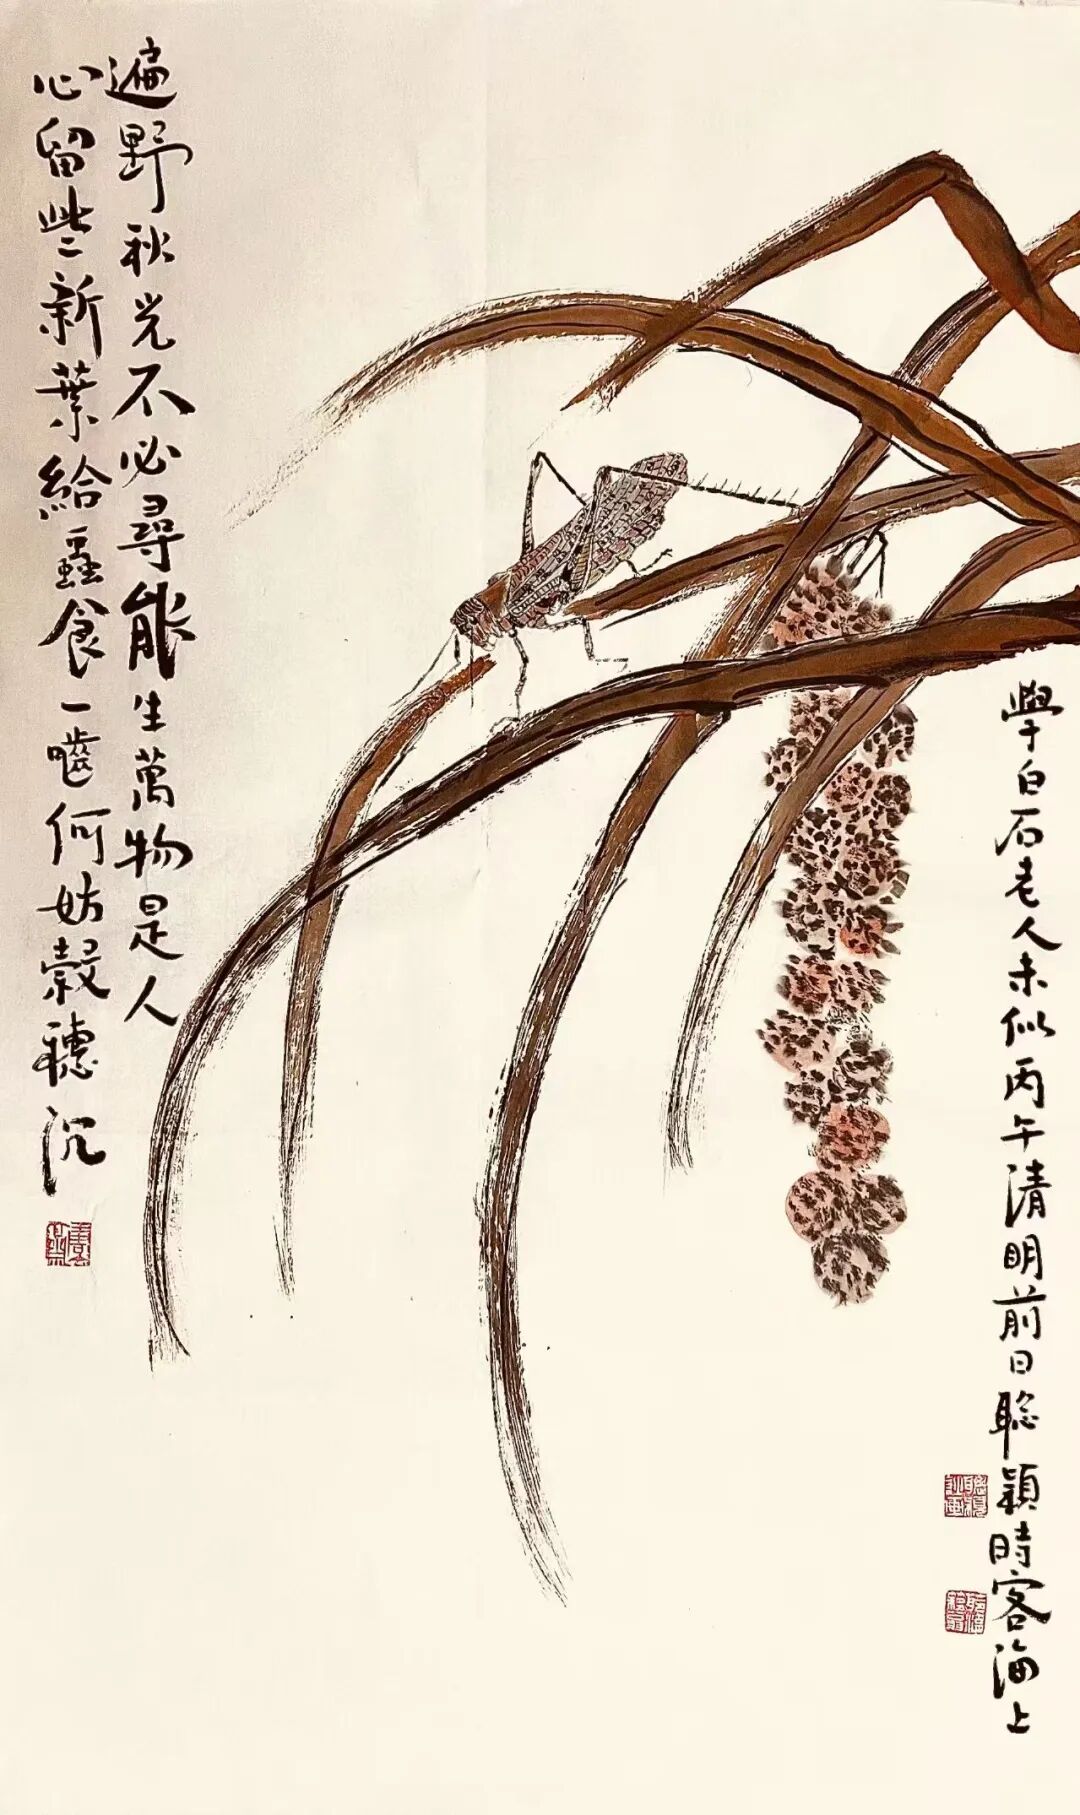 學白石老人未似丙午清明前日聡穎時客海上
遍野秋光不必尋能生萬物是人
心留些新葉給蟲食一嚙何妨穀穗沉